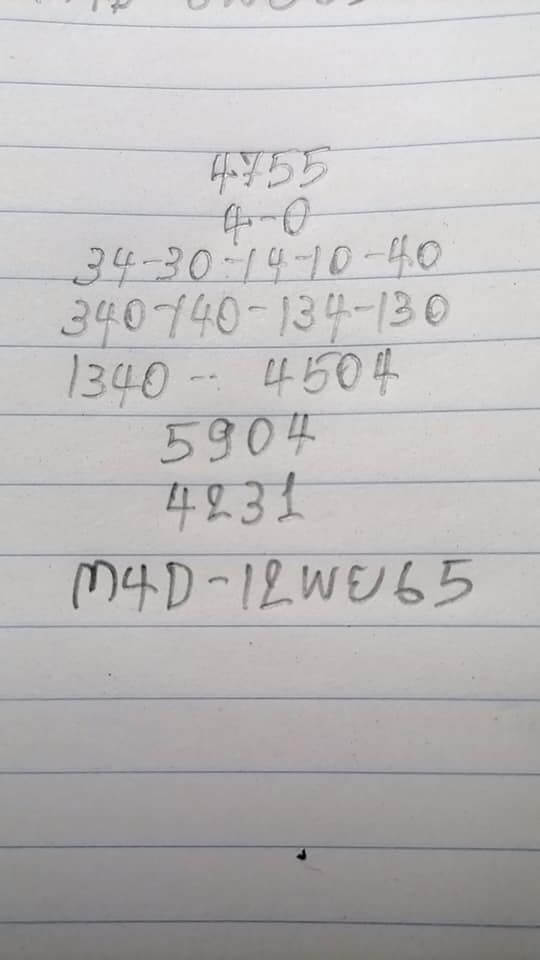 4755
4-0
34-30-14-10-40
340-140-134-130
1340-- 4504
5904
4231
M4D-12พย65